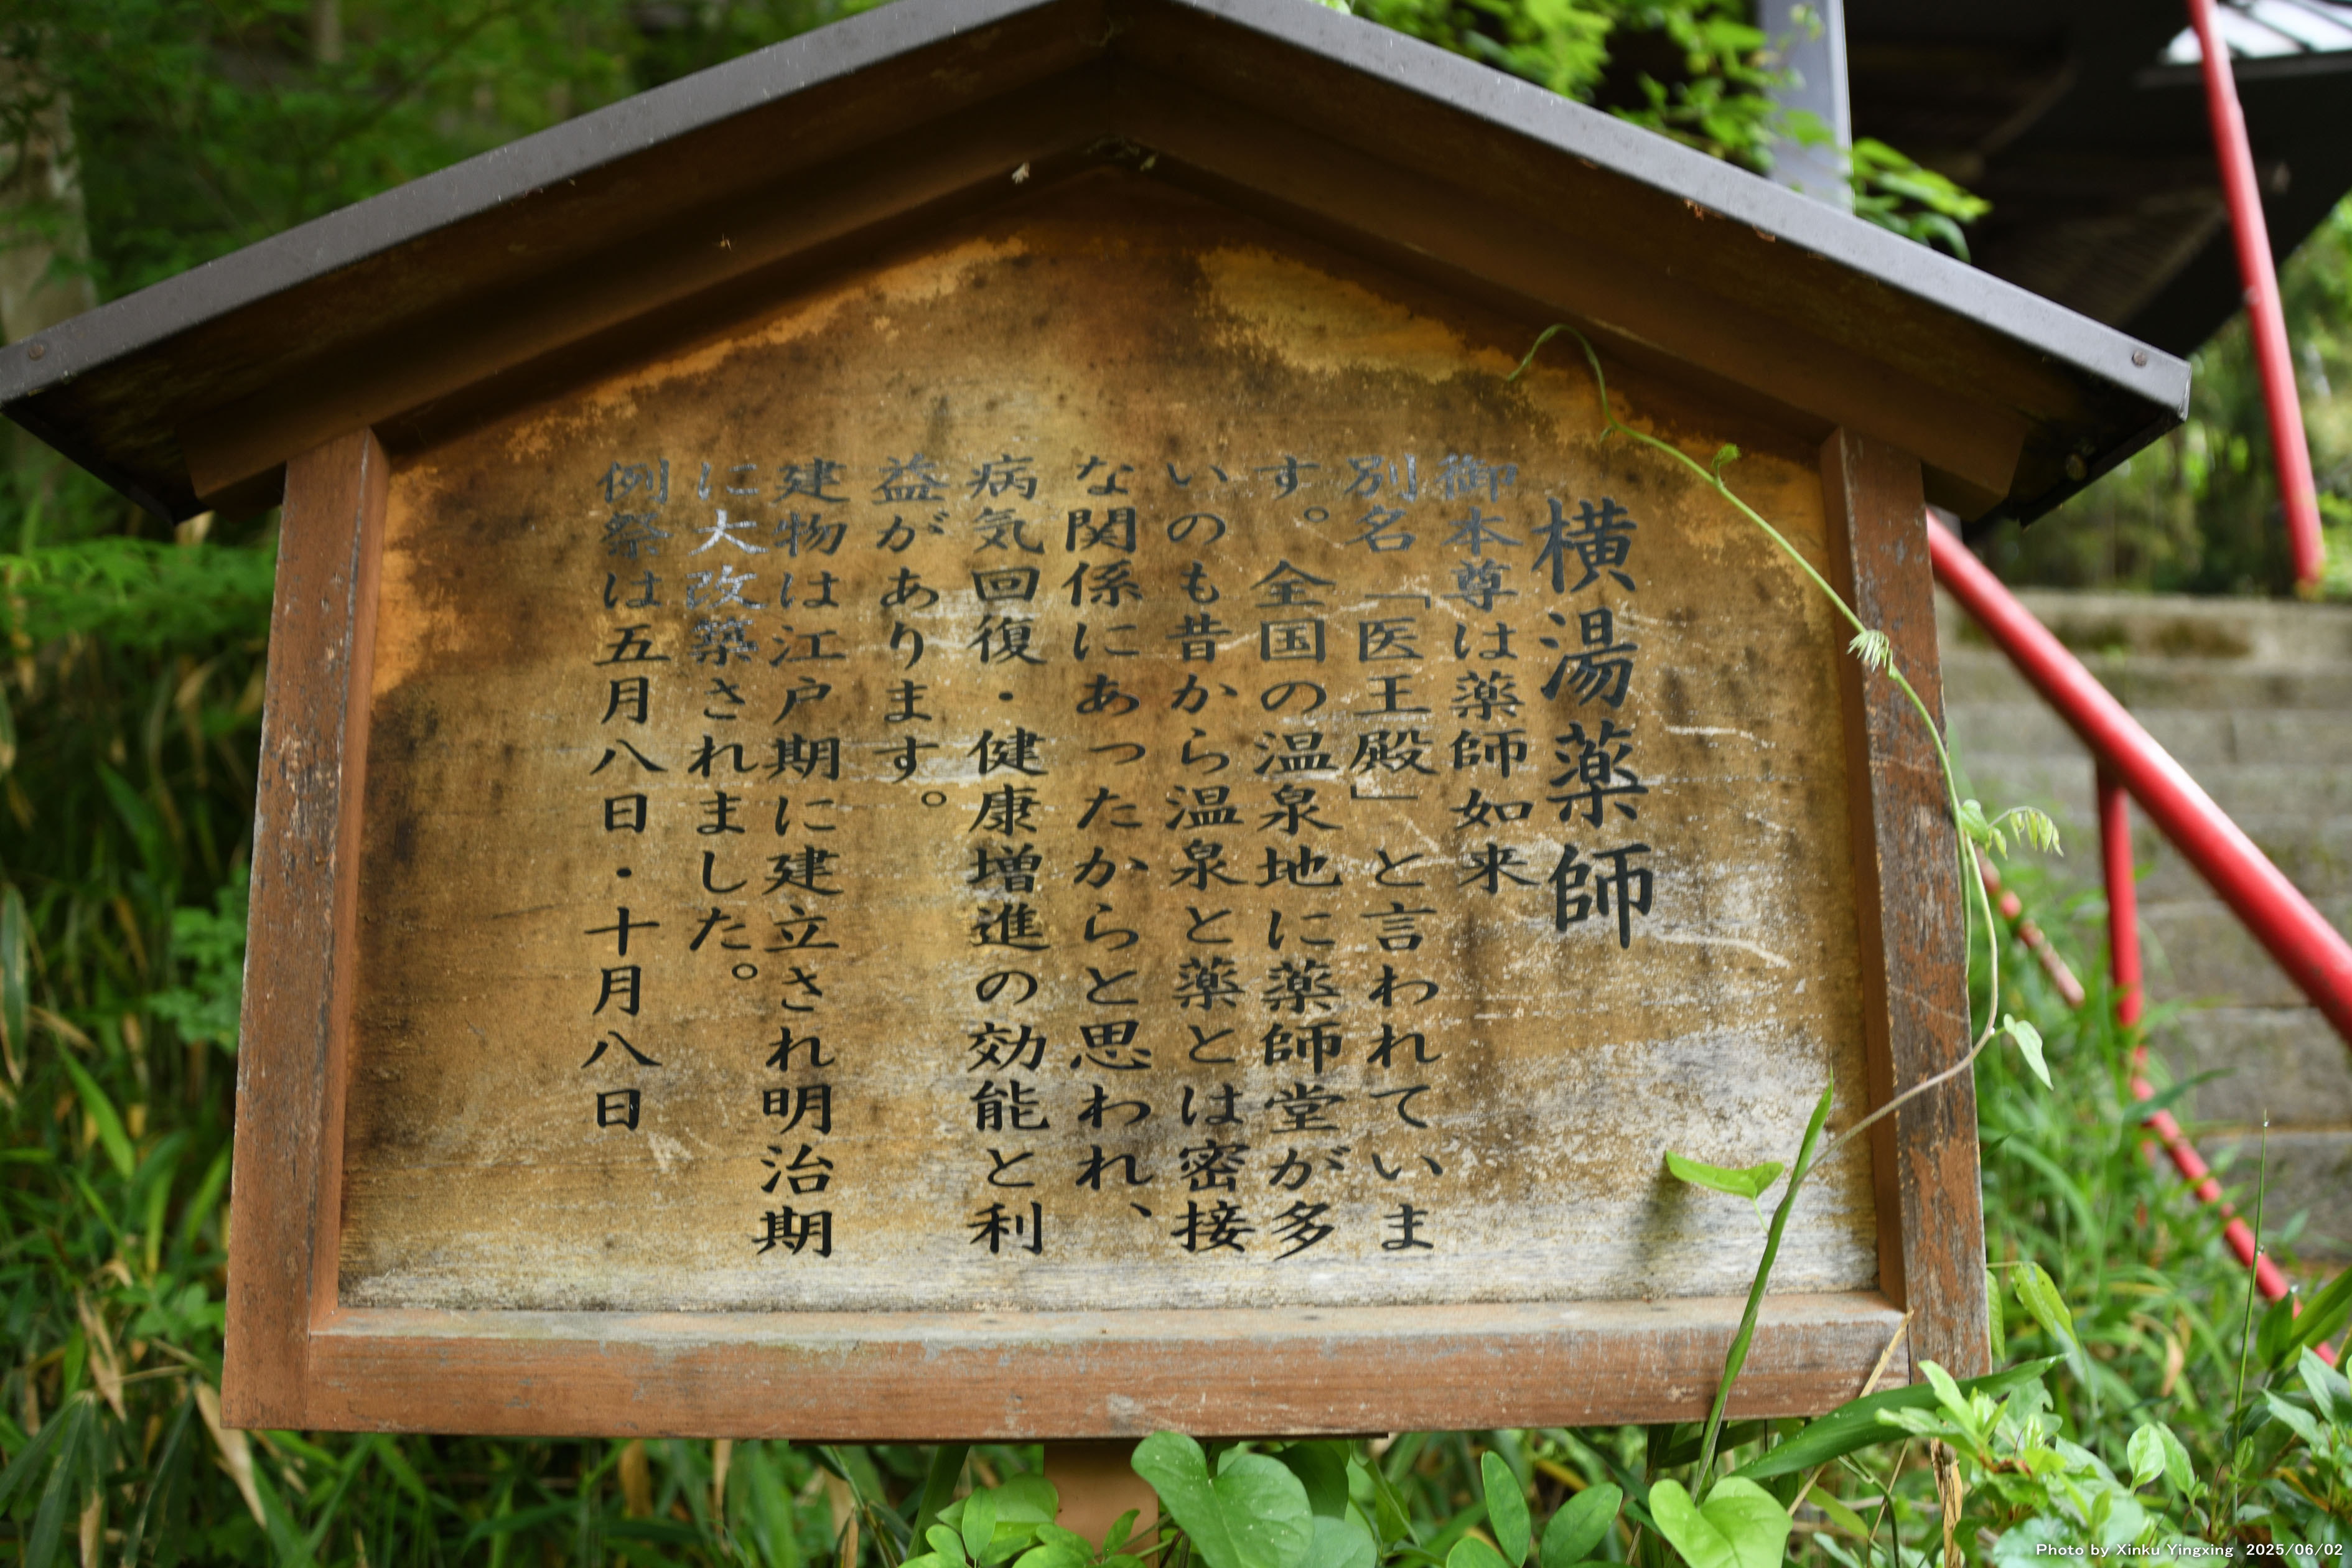 横湯薬師
御本尊は薬師如来
別名「医王殿」と言われていま
す。全国の温泉地に薬師堂が多
いのも昔から温泉と薬とは密接
な関係にあったからと思われ、
病気回復・健康増進の効能と利
益があります。
建物は江戸期に建立され明治期
に大改築されました。
例祭は五月八日・十月八日
Photo by Xinku Yingxing 2025/06/02